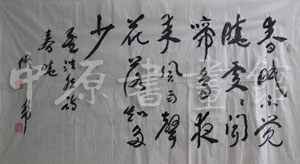 春眠不觉
晓处处闻
啼鸟夜
来风雨声
花落知多
少
孟浩然诗
春晓
中原书画馆